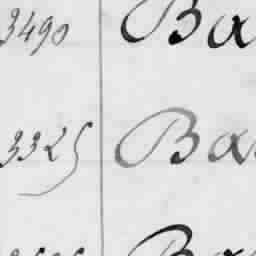 3490 Ba
3325 Ba